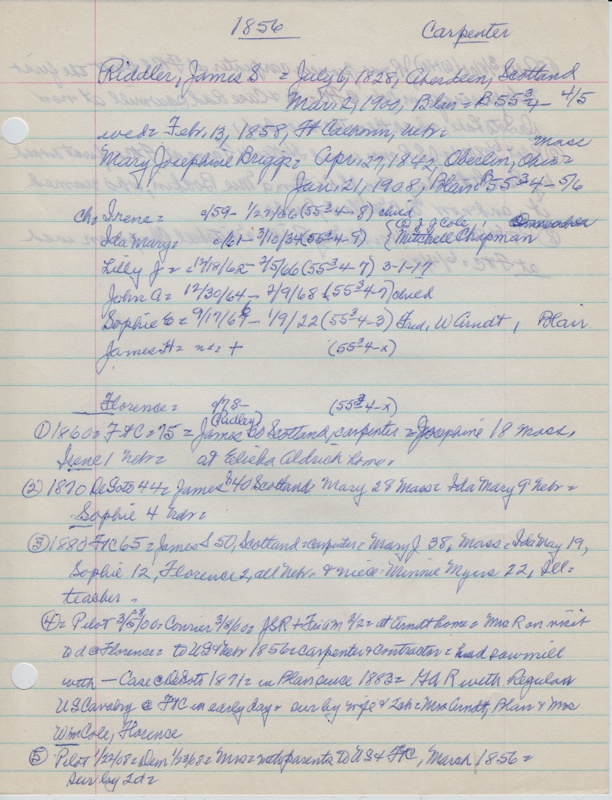 1856 Carpenter
Riddler, James S = July 6, 1828, Aberdeen, Scotland
Mar. 2, 1900, Blair = B 55 3/4 - 4/5
wed = Febr. 13, 1858, Ft Calhoun, Nebr.
Mass
Mary Josephine Briggs = Apr. 27, 1842, Oberlin, Ohio =
Jan. 21, 1908, Blair B 55 3/4 - 5/6
ch: Irene = c/59 - 1/27/66 (55 3/4 - 8) died
Ida Mary = c/61 - 3/10/34 (55 3/4 - 9) Mitchell Chapman
Lilly J = (55 3/4 - 7) 3-1-17
John A = 12/30/64 - 2/9/68 (55 3/4 - 7) died
Sophie E = 1/9/22 (55 3/4 - 3) Fred. W Arndt, Blair
James H = nd = + (55 3/4 - x)
Florence = c/78 - (55 3/4 - x)
(Ridley)
① 1860 = FtC = 75 = James Scotland, carpenter = Josephine 18 Mass,
Irene 1 Nebr = at Elisha Aldrich home =
② 1870 DeSoto 44 = James 40 Scotland = Mary 28 Mass = Ida Mary 9 Nebr =
Sophie 4 Nebr =
③ 1880 FtC 65 = James S 50, Scotland = carpenter = Mary J 38, Mass = Ida May 19,
Sophie 12, Florence 2, all Nebr. + niece = Minnie Myers 22, Ill =
teacher.
④ = Pilot = Courier = JSR + Fri am 3/2 = at Arndt home = Mrs R on visit
to d @ Florence = to US + Nebr 1856 = carpenter + contractor = had sawmill
with - Case @ DeSoto 1871 = in Blair since 1883 = with Regular
US Cavalry @ FtC in early day + sur by wife + 2ch = Mrs Arndt, Blair + Mrs
Wm Cole, Florence
⑤ Pilot 1/22/08 = Dem 1/23/08 = Mrs = w parents to US + FtC, March 1856 =
sur by 2d =